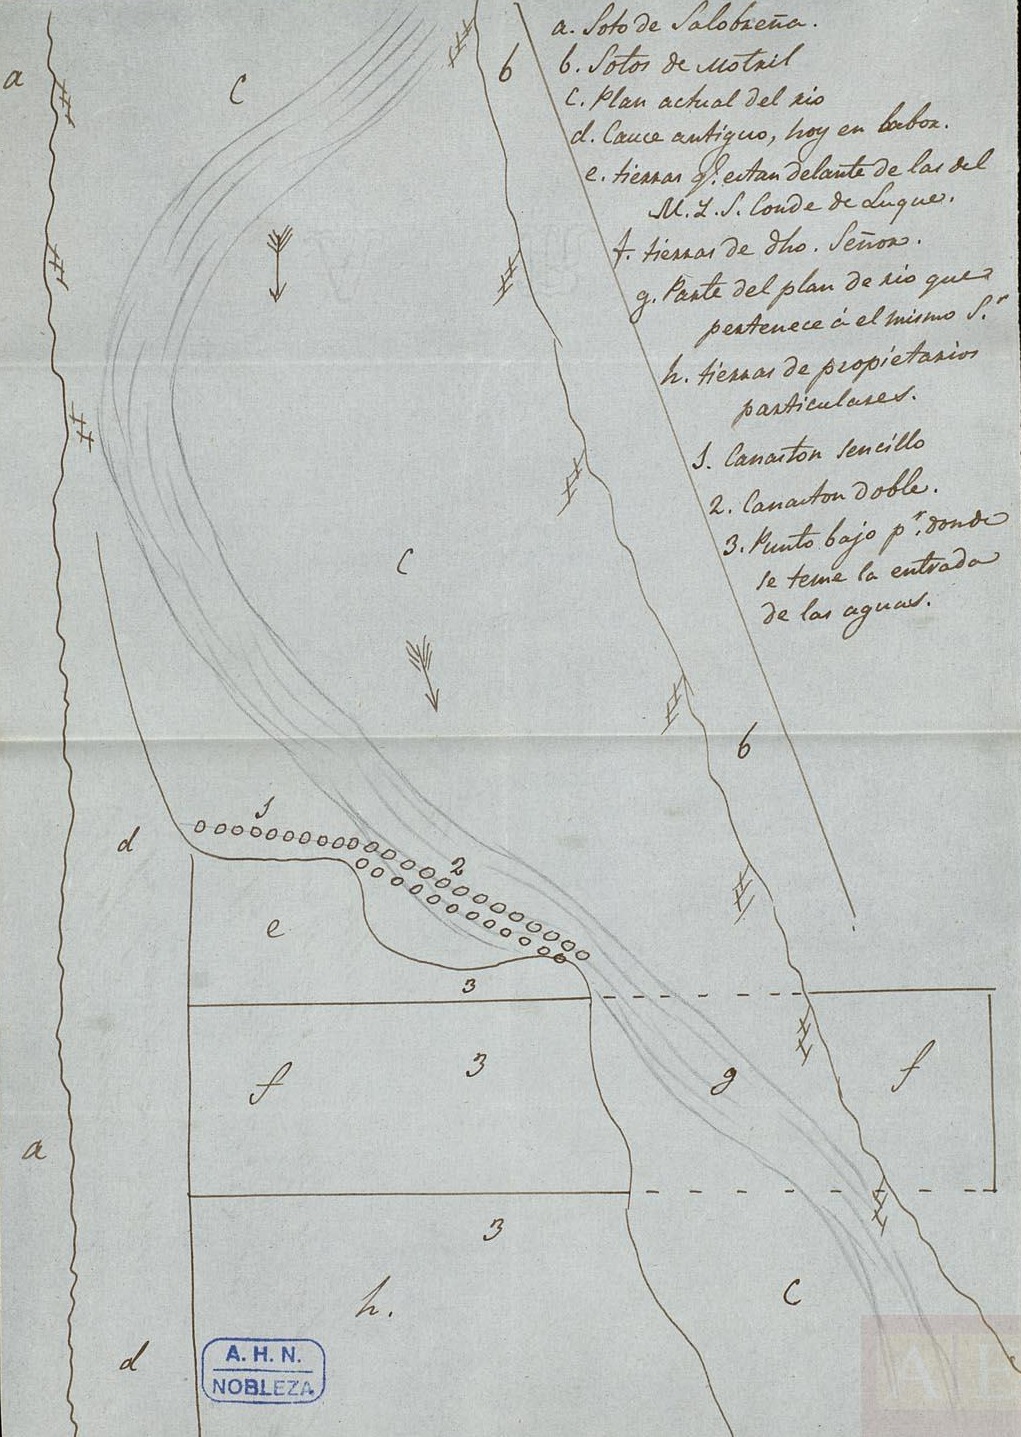 a. Soto de Salobreña.
b. Sotos de Motril
C. Plan actual del rio
d. Cauce antiguo, hoy en labor.
e. tierras q.e estan delante de las del
M. I. S. Conde de Luque.
f. tierras de dho. Señor.
g. Parte del plan de rio que
pertenece á el mismo S.r
h. tierras de propietarios
particulares.
1. Canaston sencillo
2. Canaston doble.
3. Punto bajo p.r donde
se teme la entrada
de las aguas.
a
C
b
C
b
1
d
2
e
3
3
f
g
f
a
3
h.
C
d
A. H. N.
NOBLEZA